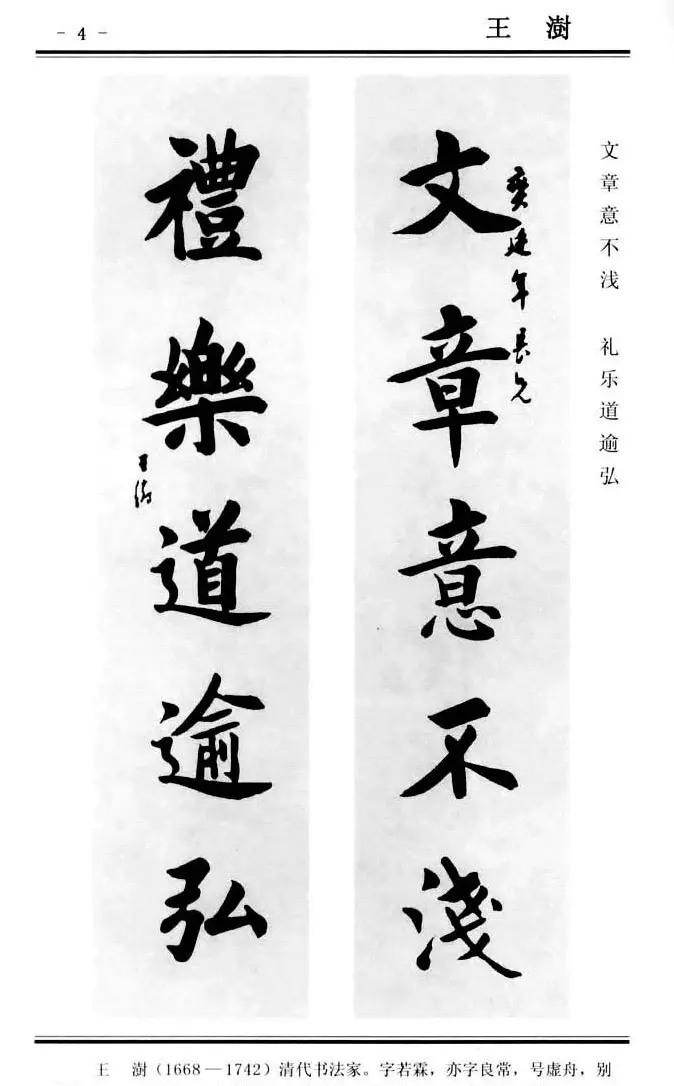 - 4 -
王 澍
文章意不浅 礼乐道逾弘
文章意不淺
年長兄
禮樂道逾弘
王澍
王 澍(1668—1742)清代书法家。字若霖,亦字良常,号虚舟,别